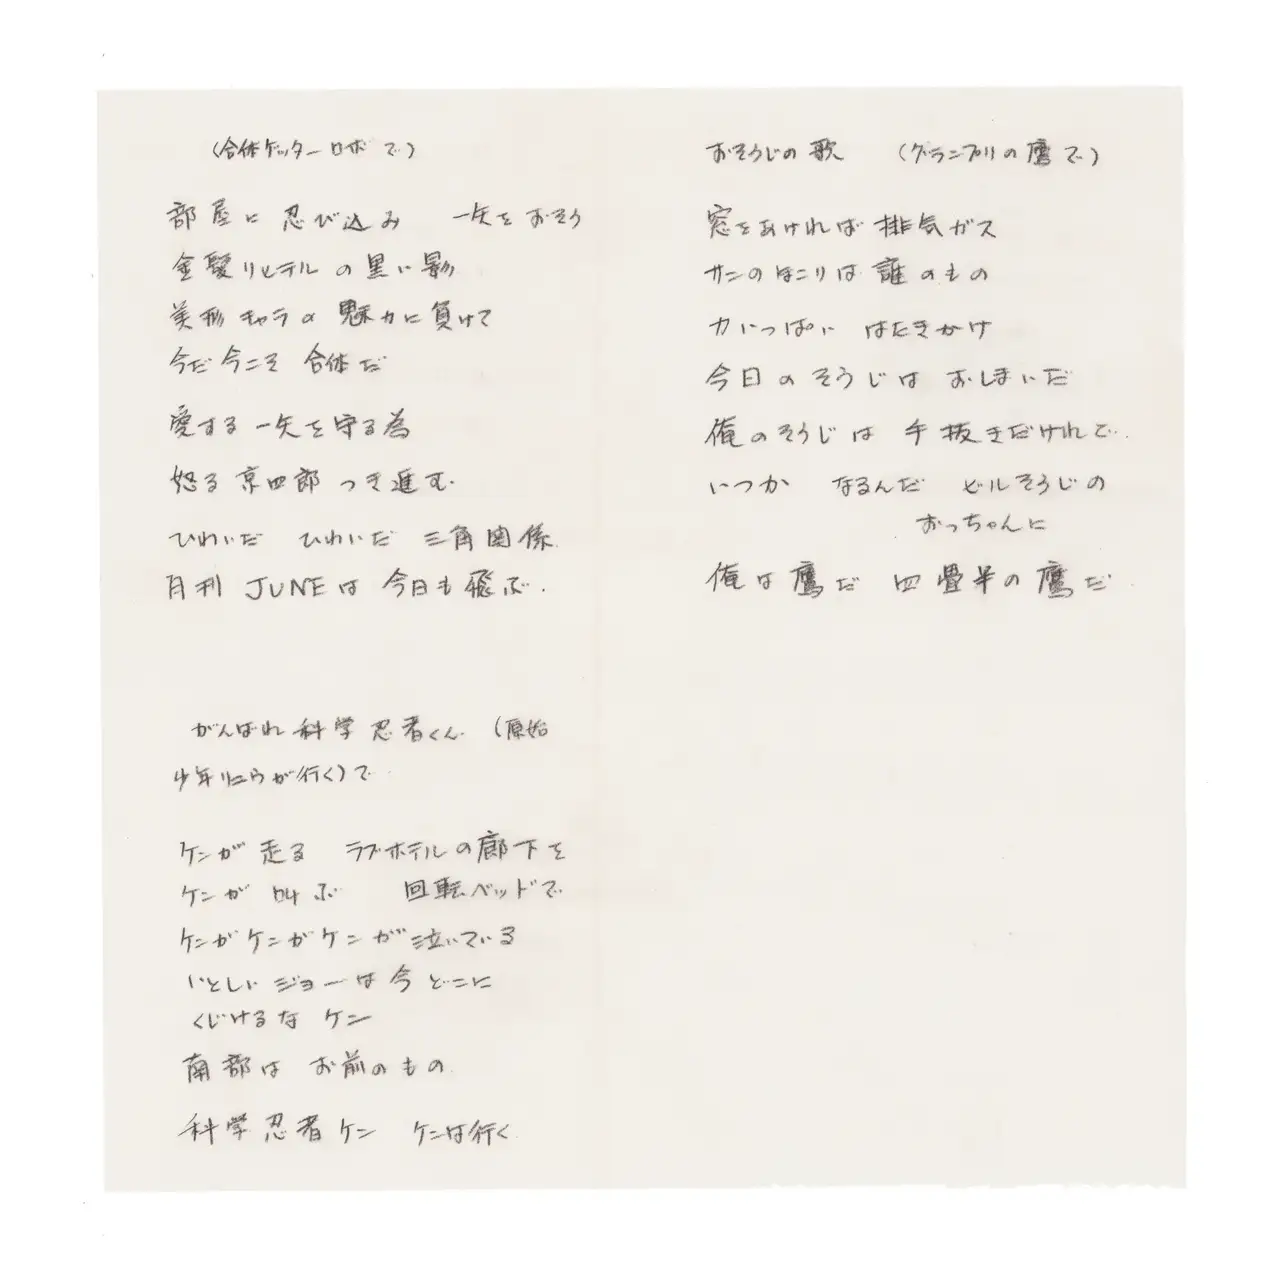 (合体ゲッターロボで)
部屋に忍び込み 一矢をおそう
金髪リヒテルの黒い影
美形キャラの魅力に負けて
今だ今こそ 合体だ
愛する一矢を守る為
怒る京四郎つき進む.
ひわいだ ひわいだ 三角関係.
月刊 JUNEは今日も飛ぶ.
がんばれ科学忍者くん (原始
少年リュウが行く)で
ケンが走る ラブホテルの廊下を
ケンが叫ぶ 回転ベッドで
ケンがケンがケンが泣いている
いとしいジョーは今どこに
くじけるな ケン
南部は お前のもの
科学忍者ケン ケンは行く
おそうじの歌 (グランプリの鷹で)
窓をあければ排気ガス
サンのほこりは誰のもの
力いっぱい はたきかけ
今日のそうじは おしまいだ
俺のそうじは 手抜きだけれど
いつか なるんだ ビルそうじの
おっちゃんに
俺は鷹だ 四畳半の鷹だ